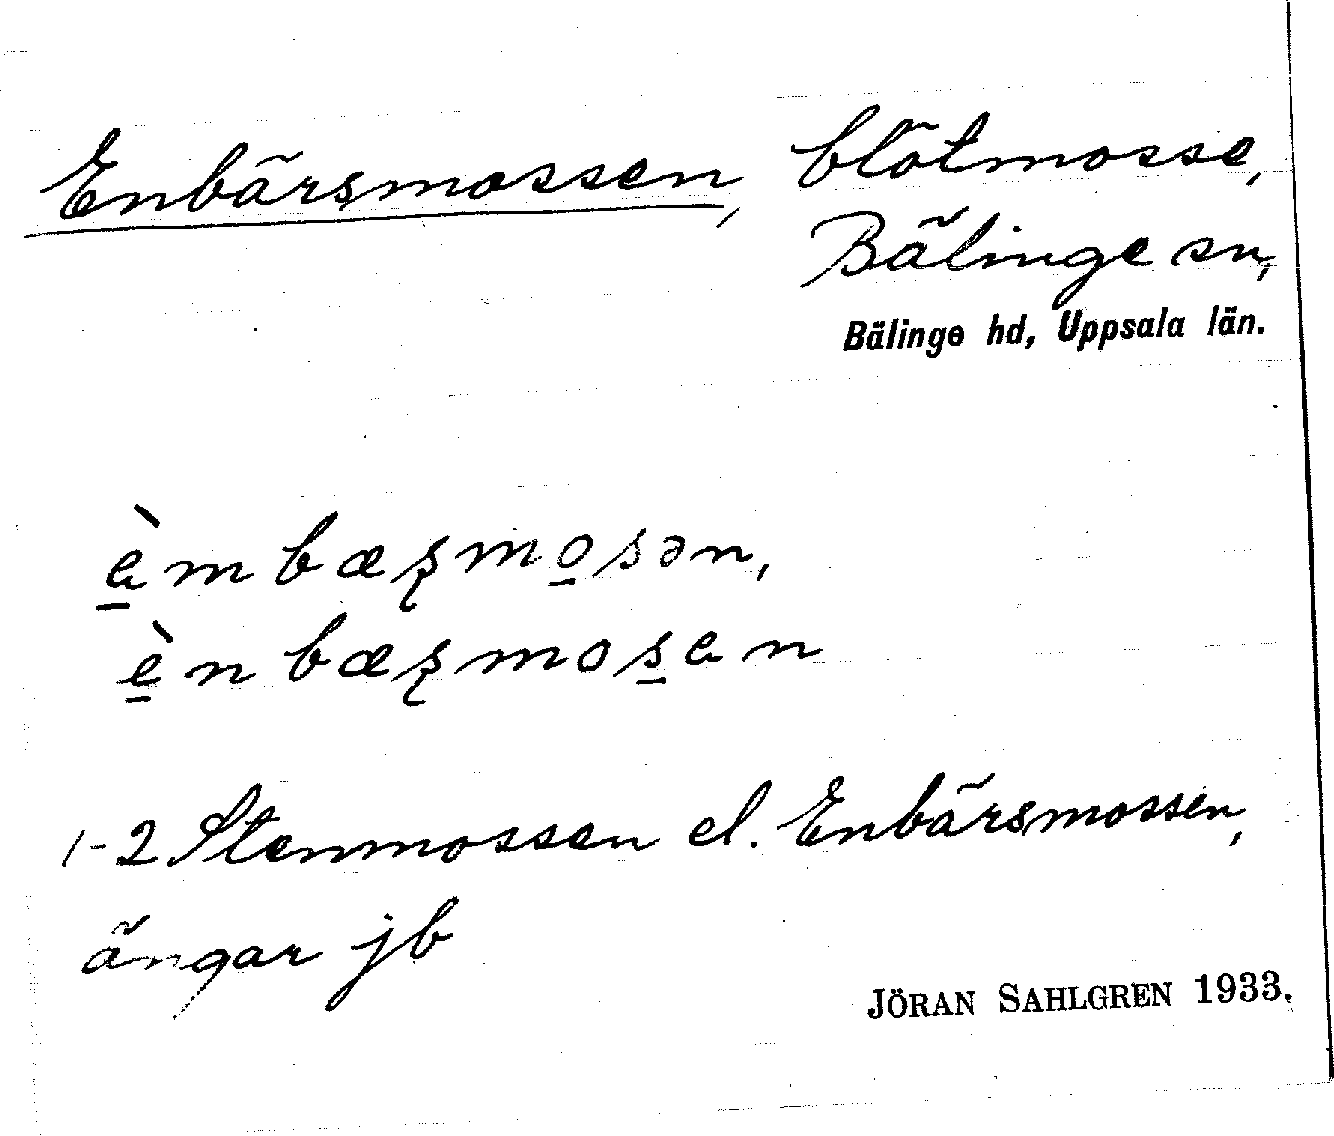 Enbärsmossen, blötmosse,
Bälinge sn,
Bälinge hd, Uppsala län.
èmbæʂmo̲sən,
è̲nbæʂmos̲en
1-2 Stenmossen el. Enbärsmossen,
ängar jb
JÖRAN SAHLGREN 1933.